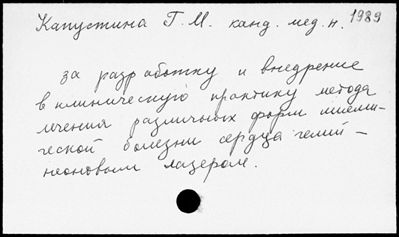 Капустина Г. М. канд. мед. н. 1989
за разработку и внедрение
в клиническую практику метода
лечения различных форм ишеми-
ческой болезни сердца гелий-
неоновым лазером.